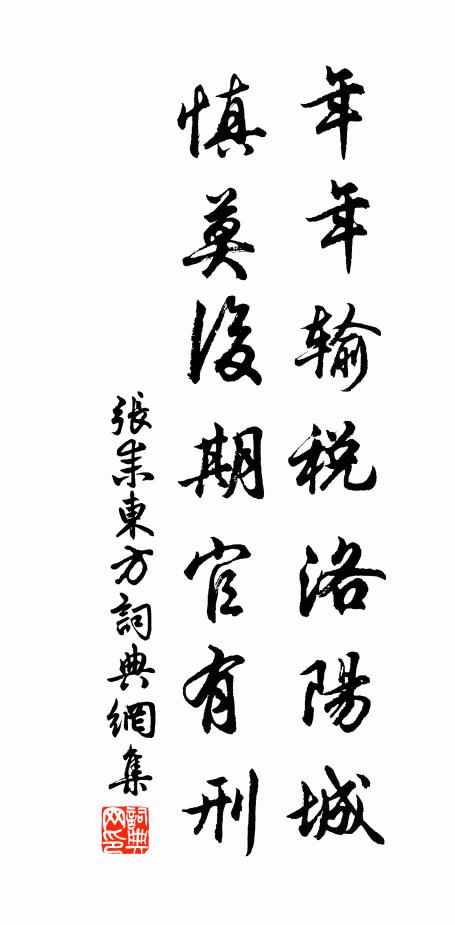 年年输税洛陽城
慎莫後期官有刑
張耒東方詞典網集
詞典网印